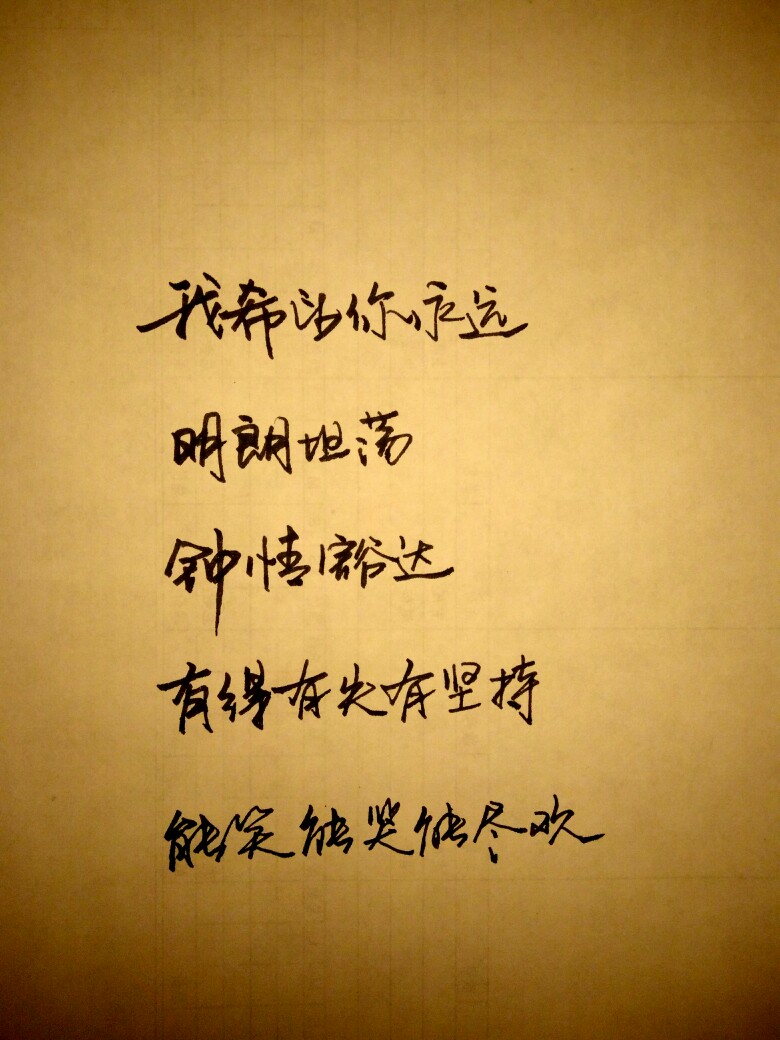 我希望你永远
明朗坦荡
钟情豁达
有得有失有坚持
能笑能哭能尽欢